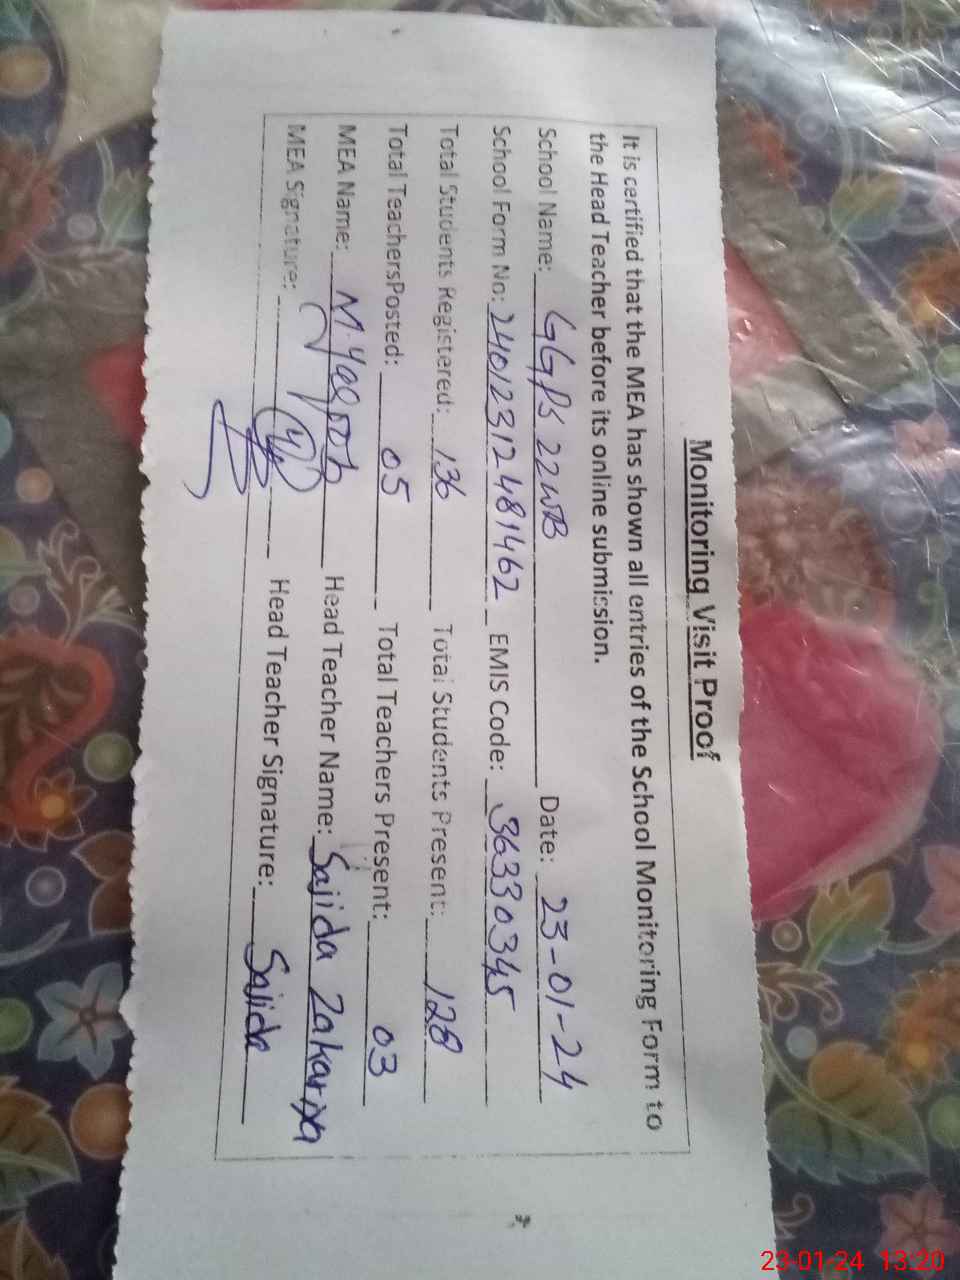 Monitoring Visit Proof
It is certified that the MEA has shown all entries of the School Monitoring Form to
the Head Teacher before its online submission.
School Name: GGPS 22WB Date: 23-01-24
School Form No: 24012312481462 EMIS Code: 36330345
Total Students Registered: 136 Total Students Present: 128
Total TeachersPosted: 05 Total Teachers Present: 03
MEA Name: M. Yaqoob Head Teacher Name: Sajida Zakariya
MEA Signature: Head Teacher Signature: Sajida
23-01-24 13:20